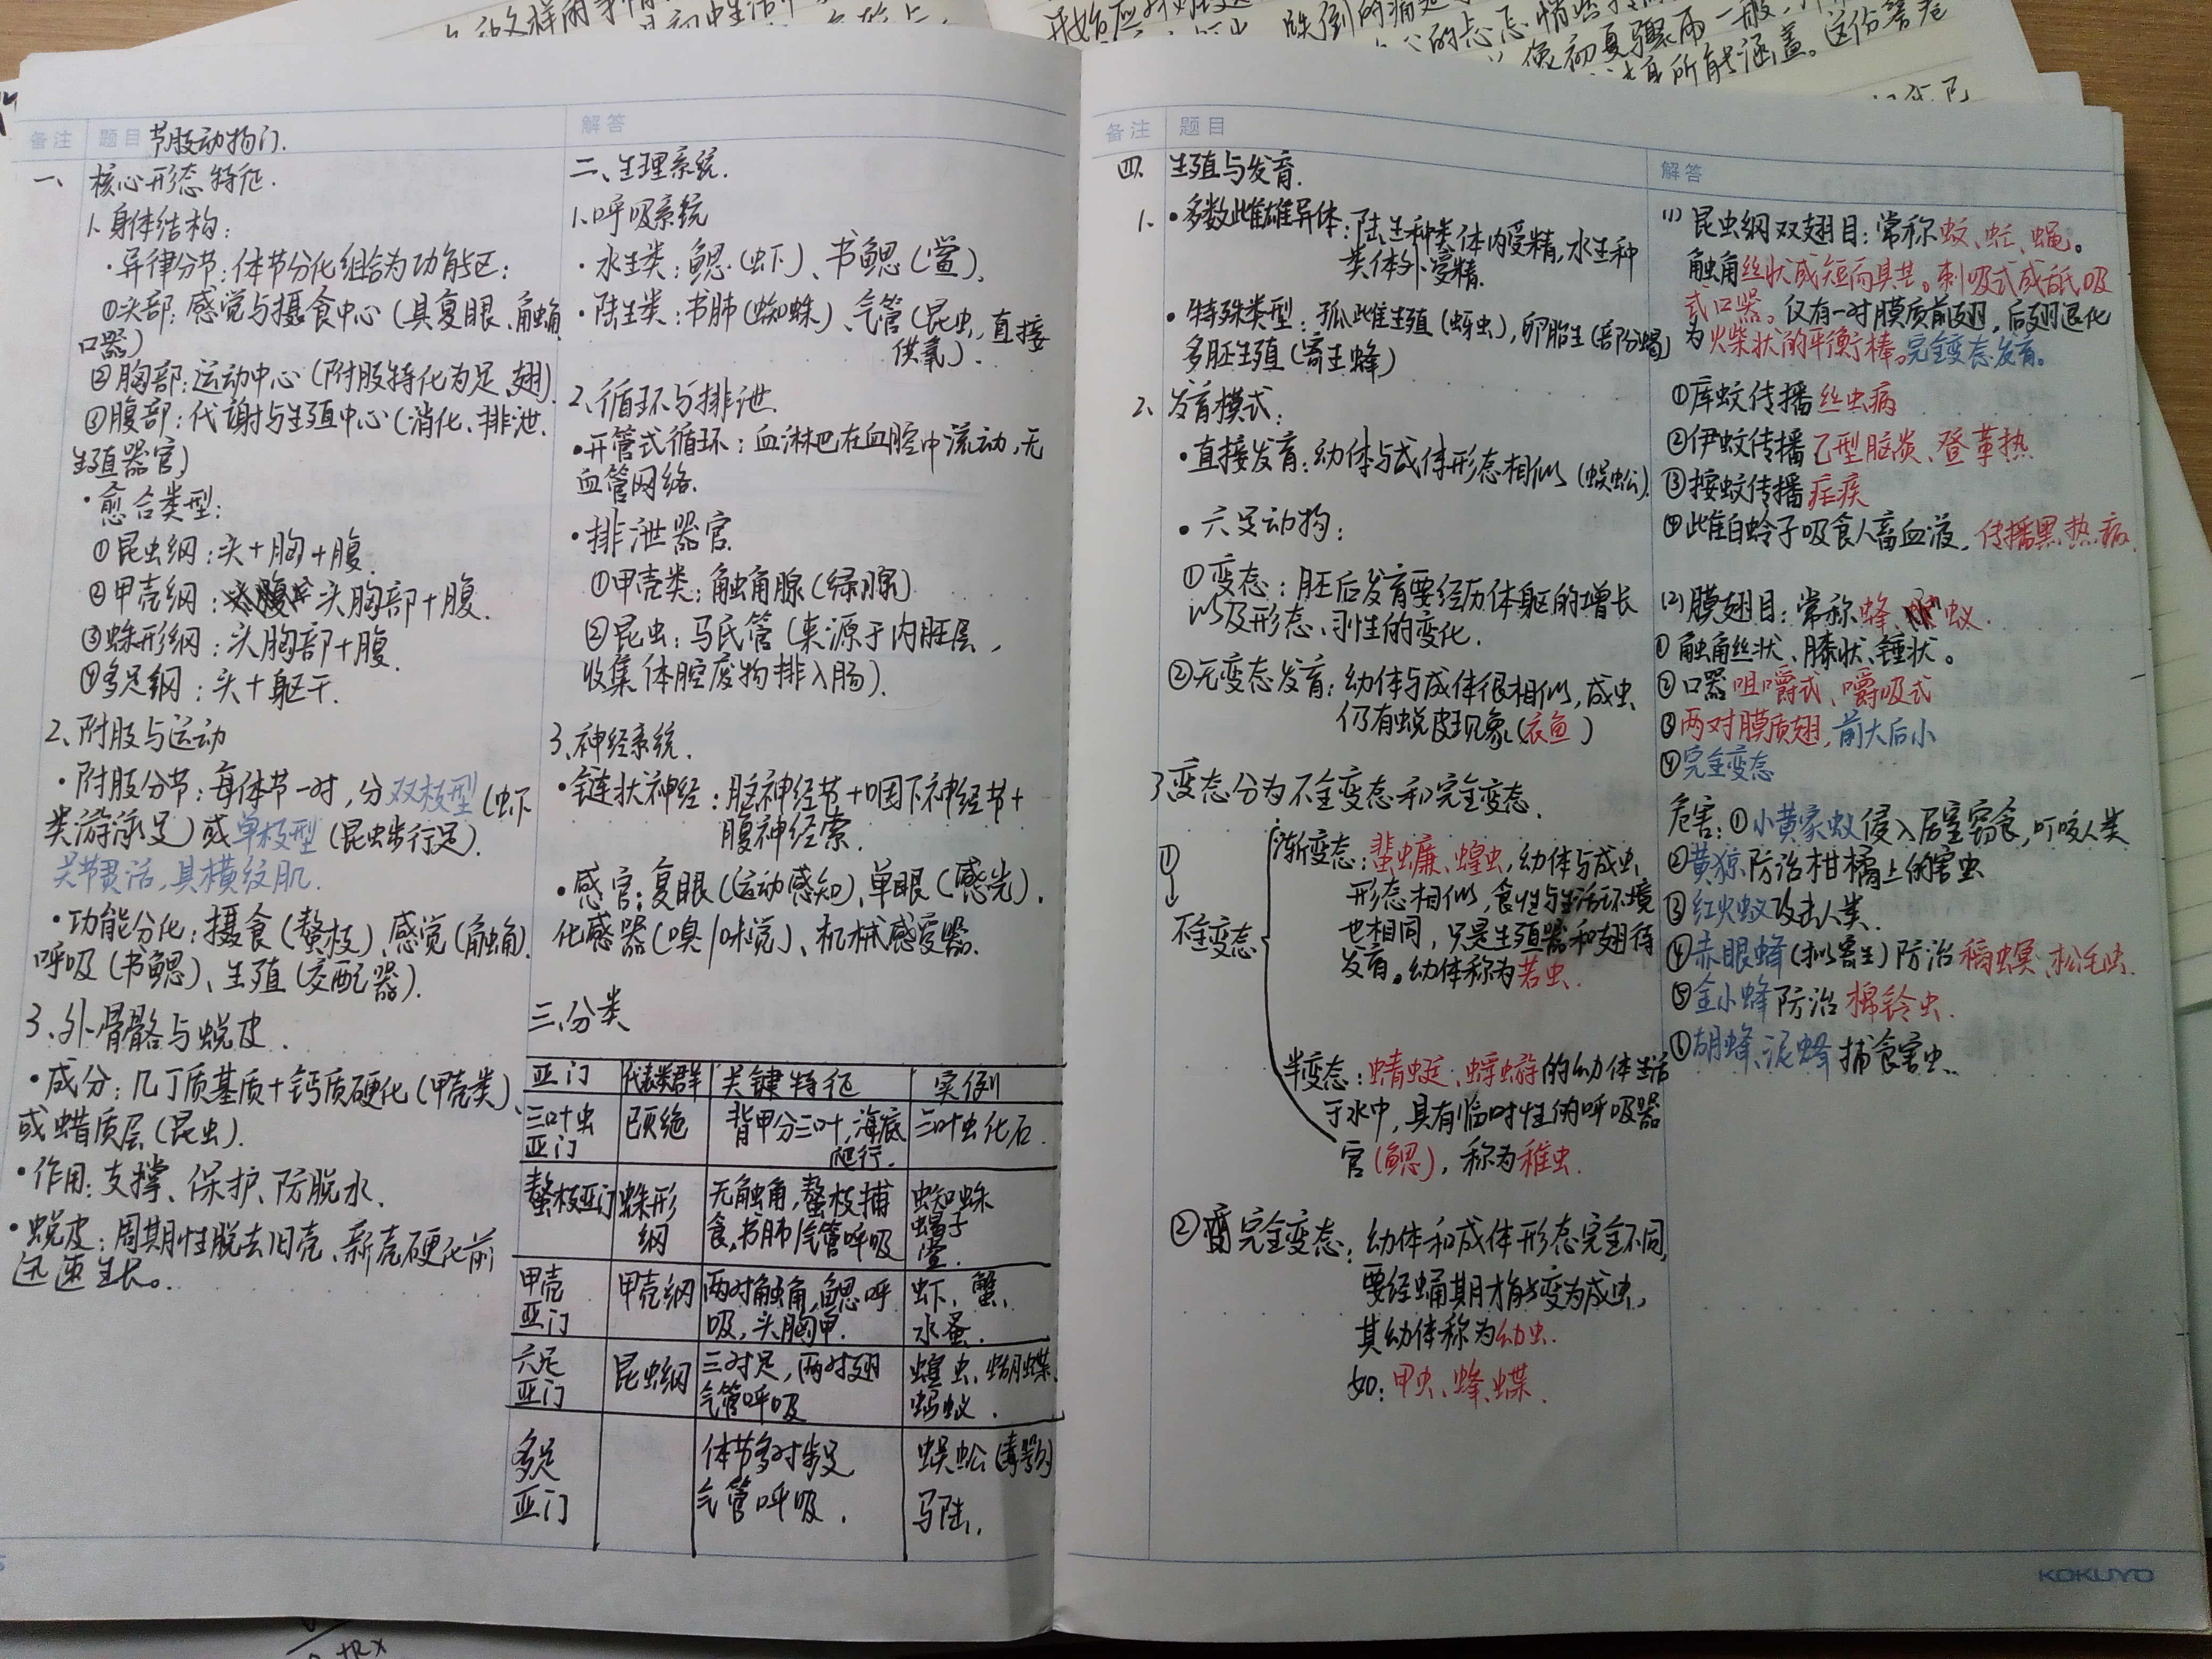 备注 题目 节肢动物门.
一、核心形态特征.
1.身体结构:
·异律分节:体节分化组合为功能区:
①头部:感觉与摄食中心(具复眼、触角
口器)
②胸部:运动中心(附肢特化为足、翅).
③腹部:代谢与生殖中心(消化、排泄、
生殖器官)
·愈合类型:
①昆虫纲:头+胸+腹.
②甲壳纲:头胸部+腹.
③蛛形纲:头胸部+腹.
④多足纲:头+躯干.
2、附肢与运动
·附肢分节:每体节一对,分双枝型(虾
类游泳足)或单枝型(昆虫步行足).
关节灵活,具横纹肌.
·功能分化:摄食(螯枝)、感觉(触角).
呼吸(书鳃)、生殖(交配器).
3、外骨骼与蜕皮.
·成分:几丁质基质+钙质硬化(甲壳类)、
或蜡质层(昆虫).
·作用:支撑、保护、防脱水.
·蜕皮:周期性脱去旧壳、新壳硬化前
迅速生长。
解答
二、生理系统.
1.呼吸系统
·水生类:鳃(虾)、书鳃(鲎).
·陆生类:书肺(蜘蛛)、气管(昆虫,直接
供氧).
2、循环与排泄.
·开管式循环:血淋巴在血腔中流动,无
血管网络.
·排泄器官.
①甲壳类:触角腺(绿腺)
②昆虫:马氏管(来源于内胚层,
收集体腔废物排入肠).
3、神经系统.
·链状神经:脑神经节+咽下神经节+
腹神经索.
·感官:复眼(运动感知)、单眼(感光).
化感器(嗅/味觉)、机械感受器.
三、分类
亚门 代表类群 关键特征 实例
三叶虫亚门 已灭绝 背甲分三叶,海底爬行. 三叶虫化石.
螯枝亚门 蛛形纲 无触角,螯枝捕食,书肺/气管呼吸 蜘蛛 蝎子 鲎.
甲壳亚门 甲壳纲 两对触角,鳃呼吸,头胸甲. 虾、蟹、水蚤.
六足亚门 昆虫纲 三对足,两对翅 气管呼吸 蝗虫、蝴蝶、蚂蚁.
多足亚门 体节多对步足 气管呼吸. 蜈蚣(毒颚) 马陆.
备注 题目
四、生殖与发育.
1.·多数雌雄异体:陆生种类体内受精,水生种
类体外受精.
·特殊类型:孤雌生殖(蚜虫),卵胎生(部分蝎)
多胚生殖(寄生蜂)
2、发育模式:
·直接发育:幼体与成体形态相似(蜈蚣).
·六足动物:
①变态:胚后发育要经历体躯的增长
以及形态、习性的变化.
②无变态发育:幼体与成体很相似,成虫
仍有蜕皮现象(衣鱼)
3.变态分为不全变态和完全变态.
①
↓
不全变态
渐变态:蜚蠊、蝗虫,幼体与成虫
形态相似,食性与生活环境
也相同,只是生殖器和翅待
发育。幼体称为若虫.
半变态:蜻蜓、蜉蝣的幼体生活
于水中,具有临时性的呼吸器
官(鳃),称为稚虫.
②完全变态:幼体和成体形态完全不同,
要经蛹期才能变为成虫,
其幼体称为幼虫.
如:甲虫、蜂、蝶.
解答
(1)昆虫纲双翅目:常称蚊、虻、蝇。
触角丝状或短而具芒。刺吸式或舐吸
式口器。仅有一对膜质前翅,后翅退化
为火柴状的平衡棒。完全变态发育。
①库蚊传播丝虫病
②伊蚊传播乙型脑炎、登革热
③按蚊传播疟疾
④雌白蛉子吸食人畜血液,传播黑热病.
(2)膜翅目:常称蜂、蚁.
①触角丝状、膝状、锤状。
②口器咀嚼式、嚼吸式
③两对膜质翅,前大后小
④完全变态
危害:①小黄家蚁侵入居室窃食,叮咬人类
②黄猄防治柑橘上的害虫
③红火蚁攻击人类.
④赤眼蜂(拟寄生)防治稻螟、松毛虫.
⑤金小蜂防治棉铃虫.
⑥胡蜂、泥蜂捕食害虫.
KOKUYO